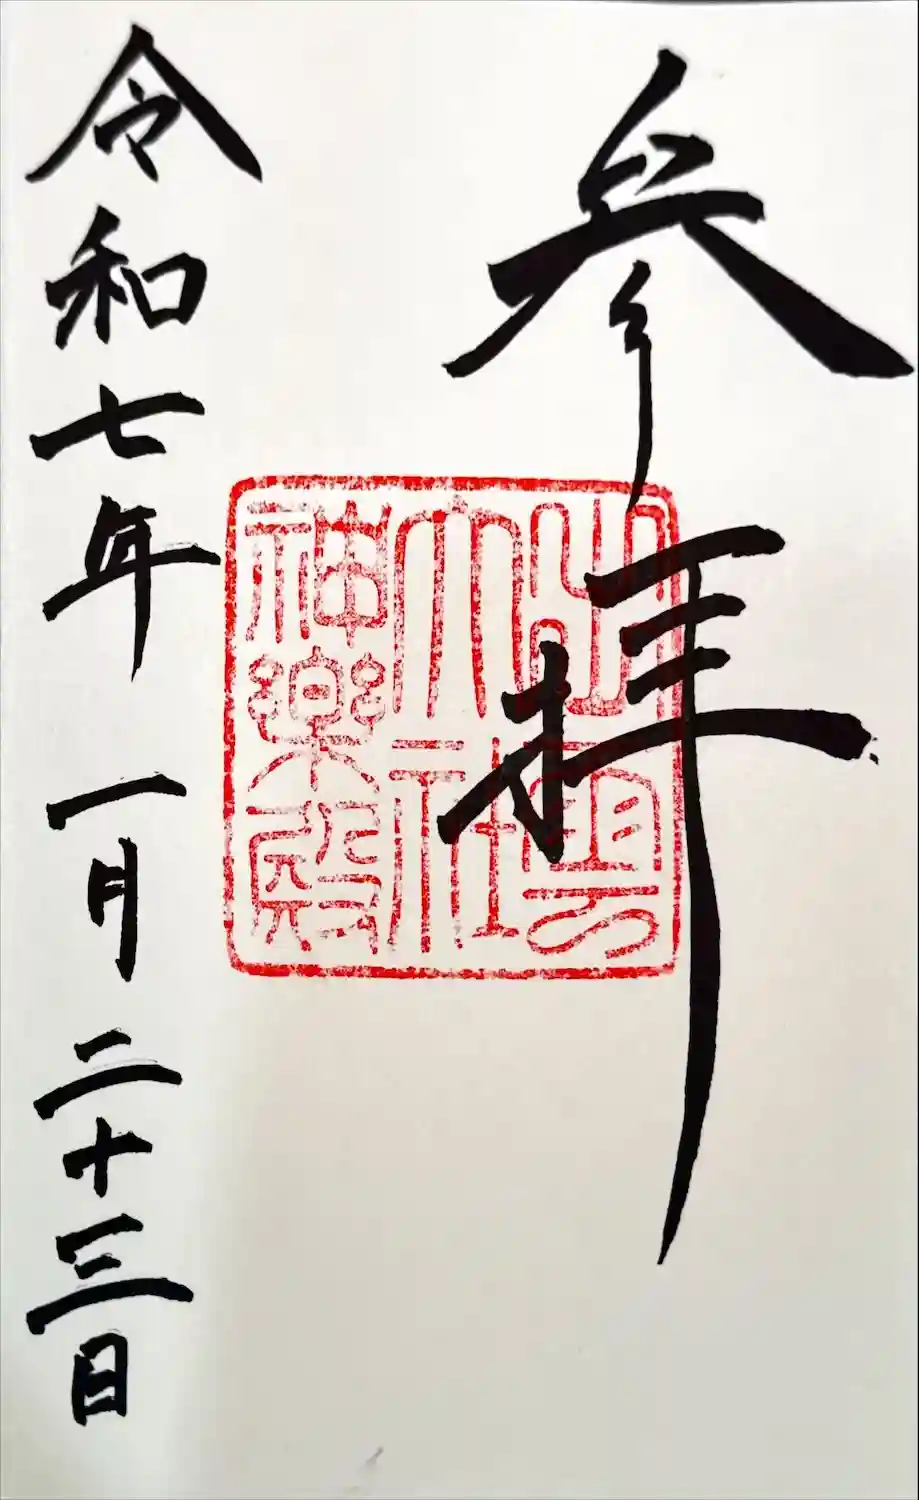 参拝
出雲
大社
神楽殿
令和七年 一月二十三日